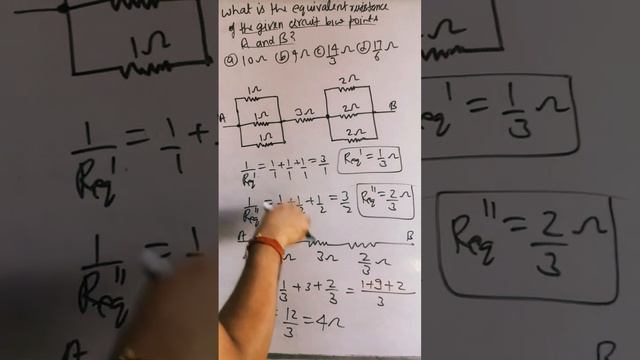 what is the equivalent resistance
of the given circuit b/w points
A and B?
(a) 10Ω (b) 4Ω (c) 14/3 Ω (d) 17/6 Ω
1Ω 2Ω
A 1Ω 3Ω 2Ω B
1Ω 2Ω
1/Req' = 1/1 + 1/1 + 1/1 = 3/1 Req' = 1/3 Ω
1/Req'' = 1/2 + 1/2 + 1/2 = 3/2 Req'' = 2/3 Ω
A B
Ω 3Ω 2/3 Ω
1/3 + 3 + 2/3 = (1+9+2)/3
= 12/3 = 4Ω
1Ω
1/Req' = 1/1 +
1/Req'' =
A
Req' = 1/3 Ω
Req'' = 2/3 Ω
B